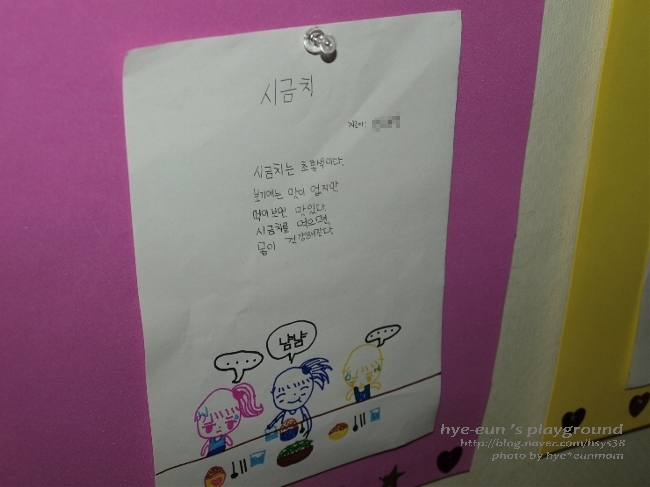 시금치
지은이:
시금치는 초록색이다.
보기에는 맛이 없지만
먹어보면 맛있다.
시금치를 먹으면,
몸이 건강해진다.
....
냠냠
....
hye-eun 's playground
http://blog.naver.com/hsys38
photo by hye*eunmom